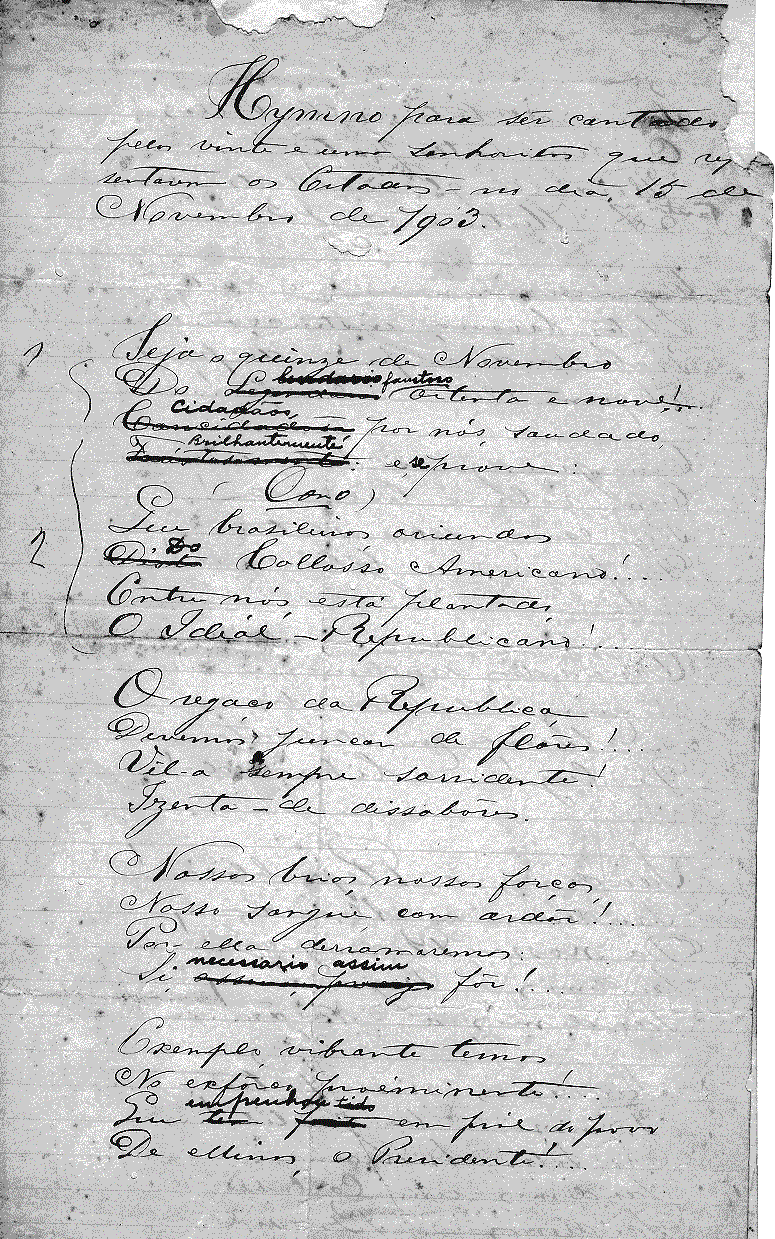 Hymno para ser cantado
pelas vinte e uma senhoritas que
sentarem os Estados - no dia, 15 de
Novembro de 1903.
1
Seja o quinze de Novembro
faustoso
Do oitenta e nove!..
Cidadãos,
por nós, saudado
Brilhantemente
: e se prove :
(Coro)
2
Que brasileiros oriundos
Do
Collosso Americano!....
Entre nós está plantado,
O Ideial - Republicano!....
O regaço da Republica
Devemos juncar de flôres!...
Vel-a sempre sorridente!
Izenta - de dissabôres.
Nossos brios, nossas forças,
Nosso sangue com ardôr!....
Por ella derramaremos:
necessario assim
Si fôr!....
Exemplo vibrante temos
No exfórço proiminente!....
empenhou tido
Que em pról do povo
De Minas, o Presidente!....